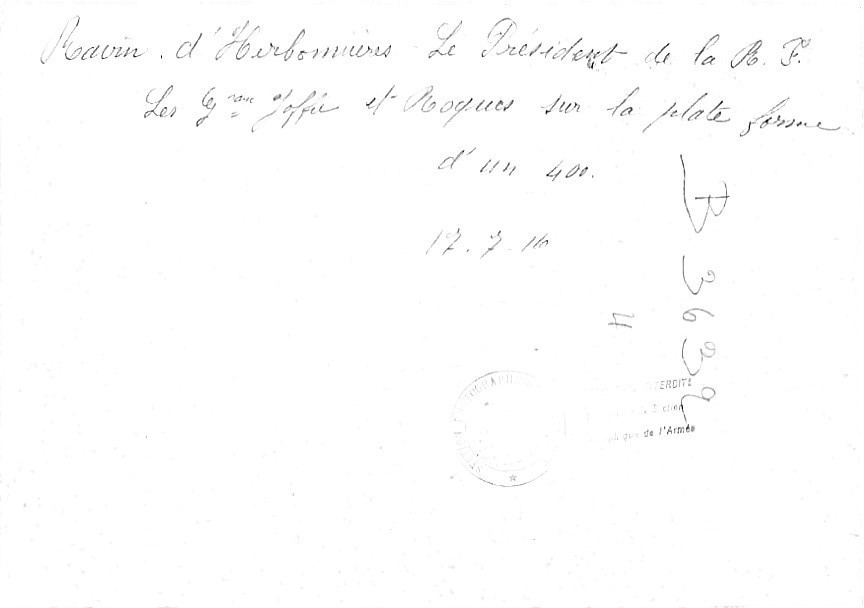 Ravin d'Herbonnières Le Président de la R. F.
Les Gaux Joffre et Roques sur la plate forme
d'un 400.
17.7.16
B 3639
4
INTERDITE
de l'Armée